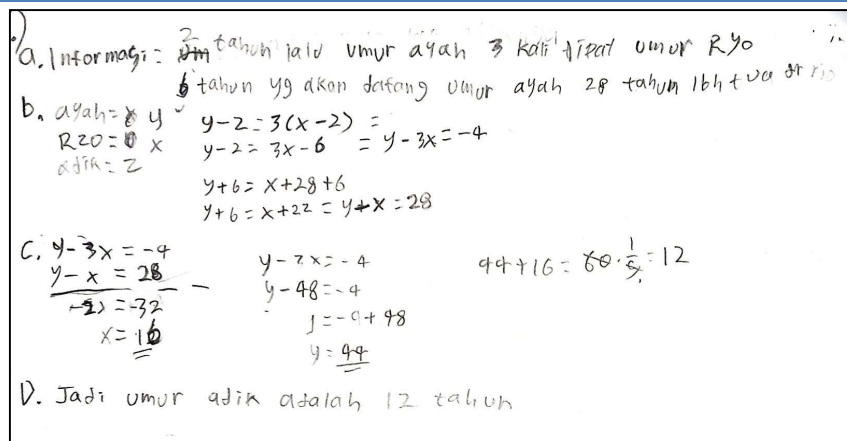 a. Informasi: 2 tahun lalu umur ayah 3 kali lipat umur Ryo
6 tahun yg akan datang umur ayah 28 tahun lbh tua dr rio
b. ayah = y
R20 = x
adik = z
y-2 = 3(x-2) =
y-2 = 3x-6 = y-3x = -4
y+6 = x+28+6
y+6 = x+22 = y+x = 28
C. y-3x = -4
y-x = 28
= -32
x = 16
y-3x = -4
y-48 = -4
y = -4+48
y = 44
44+16 = 60 . 1/5 = 12
D. Jadi umur adik adalah 12 tahun